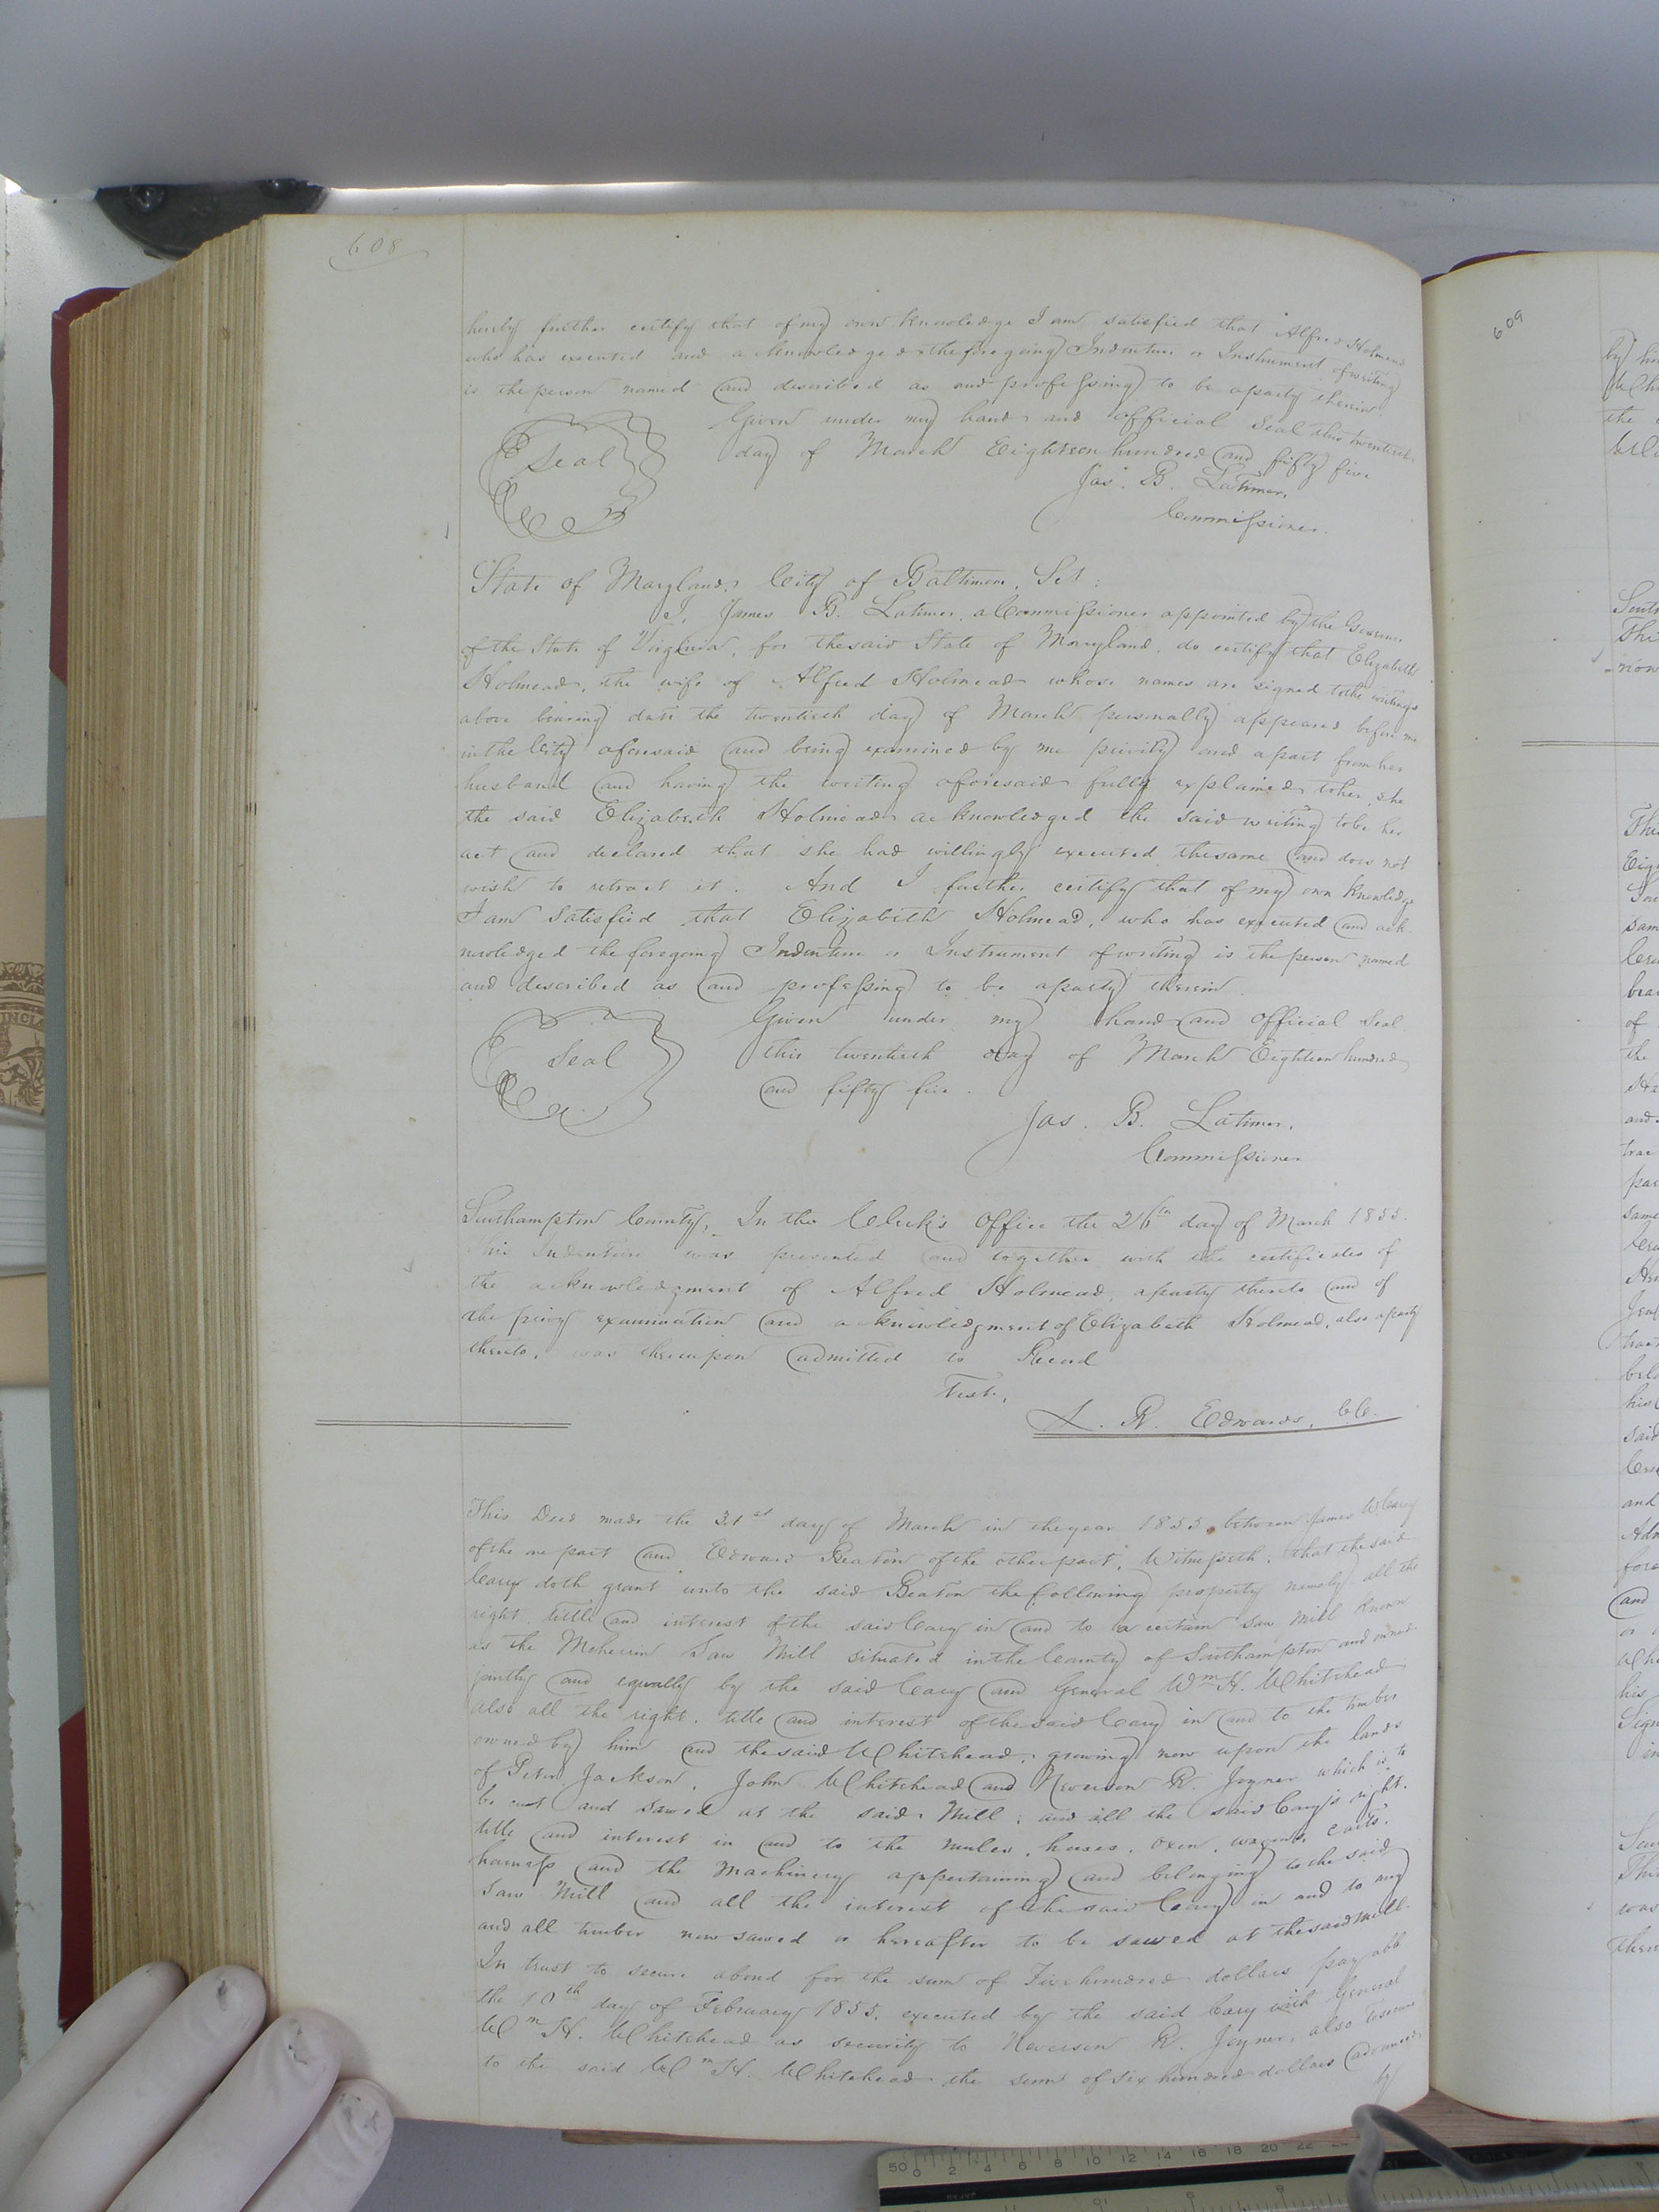 608
hereby further certify that of my own knowledge I am satisfied that Alfred Holmead
who has executed and acknowledged the foregoing Indenture or Instrument of writing
is the person named and described as and professing to be a party therein.
Given under my hand and official Seal this twentieth
Seal
day of March Eighteen hundred and fifty five.
Jas. B. Latimer,
Commissioner.
State of Maryland, City of Baltimore, Sct:
I, James B. Latimer, a Commissioner appointed by the Governor
of the State of Virginia, for the said State of Maryland, do certify that Elizabeth
Holmead, the wife of Alfred Holmead whose names are signed to the writings
above bearing date the twentieth day of March personally appeared before me
in the City aforesaid and being examined by me privily and apart from her
husband and having the writing aforesaid fully explained to her, she
the said Elizabeth Holmead acknowledged the said writing to be her
act and declared that she had willingly executed the same and does not
wish to retract it. And I further certify that of my own knowledge
I am satisfied that Elizabeth Holmead, who has executed and ack
nowledged the foregoing Indenture or Instrument of writing is the person named
and described as and professing to be a party therein.
Given under my hand and official Seal
Seal
this twentieth day of March Eighteen hundred
and fifty five.
Jas. B. Latimer,
Commissioner
Southampton County, In the Clerk's Office the 26th day of March 1855.
This Indenture was presented and together with the certificates of
the acknowledgment of Alfred Holmead, a party thereto and of
the privy examination and acknowledgment of Elizabeth Holmead, also a party
thereto, was thereupon admitted to Record
Test.,
L. R. Edwards, CC.
This Deed made the 31st day of March in the year 1855, between James W Cary
of the one part and Edward Beaton of the other part, Witnesseth, that the said
Cary doth grant unto the said Beaton the following property namely all the
right, tittle and interest of the said Cary in and to a certain saw mill known
as the Meherrin Saw Mill situated in the County of Southampton and owned
jointly and equally by the said Cary and General Wm H. Whitehead
also all the right, title and interest of the said Cary in and to the timber
owned by him and the said Whitehead, growing now upon the lands
of Peter Jackson, John Whitehead and Neverson R. Joyner which is to
be cut and sawed at the said Mill; and all the said Cary's right.
title and interest in and to the mules, horses, oxen, wagons, carts,
harness and the Machinery appertaining and belonging to the said
Saw Mill and all the interest of the said Cary in and to any
and all timber now sawed or hereafter to be sawed at the said mill.
In trust to secure a bond for the sum of Five hundred dollars payable
the 10th day of February 1855, executed by the said Cary with General
Wm H. Whitehead as security to Neverson R. Joyner, also to secure
to the said Wm H. Whitehead the sum of six hundred dollars advanced
by
609
50 0 2 4 6 8 10 12 14 16 18 20 22